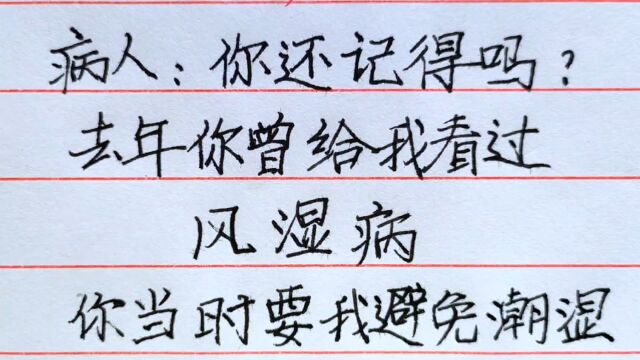 病人：你还记得吗？
去年你曾给我看过
风湿病
你当时要我避免潮湿